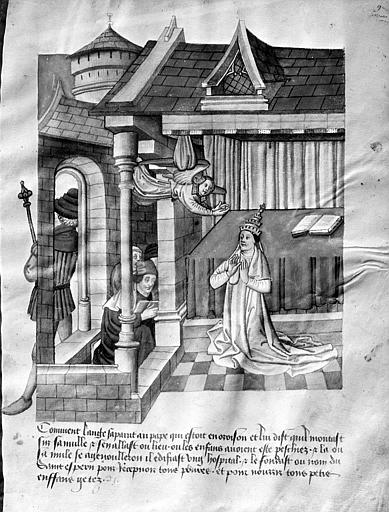 Comment lange saparut au pape qui estoit en oroison et lui dist quil montast
sur sa mulle & sen allast ou lieu ou les enfans avoient este peschiez & la ou
sa mule se agenoulleroit il ediffiast ung hospital & le fondast ou nom du
saint esperit pour recepvoir tous povres et pour nourir tous petis
enffans getez